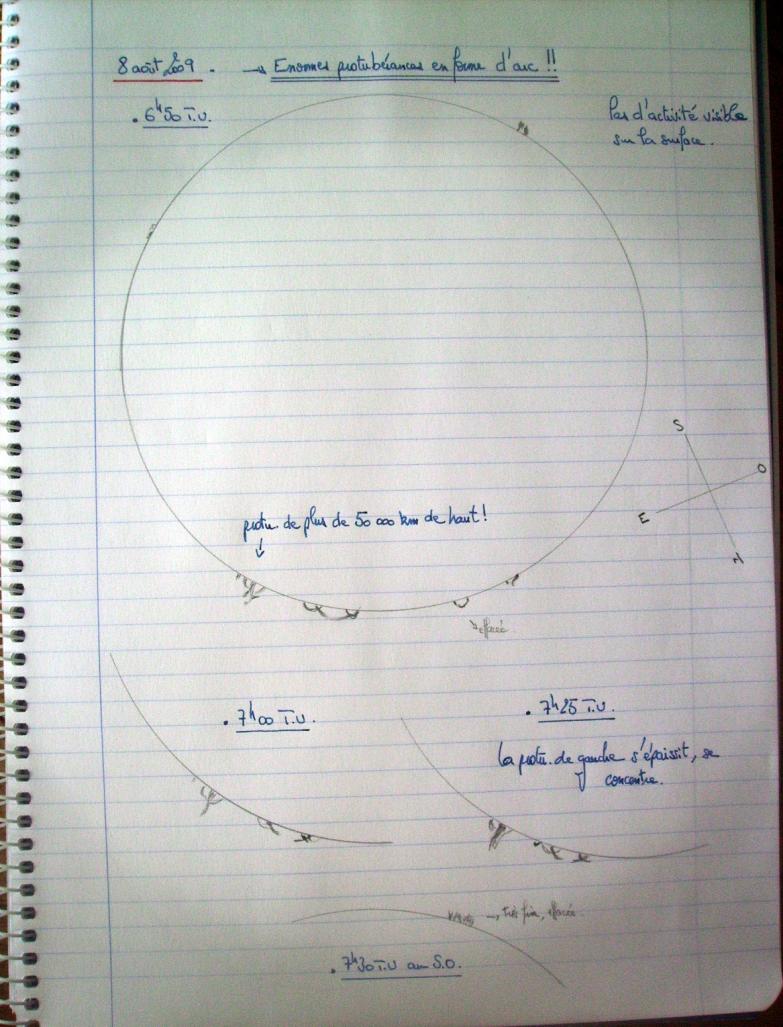 8 août 2009. → Enormes protubérances en forme d'arc !!
. 6h50 T.U.
Pas d'activité visible
sur la surface.
S
O
E
N
protu. de plus de 50 000 km de haut !
effacée
. 7h00 T.U.
. 7h25 T.U.
La protu. de gauche s'épaissit, se
concentre.
→ très fin, effacée.
. 7h30 T.U au S.O.